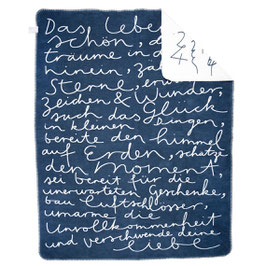 Das Lebe
schön, d
träume in d
hinein, zä
Sterne, er
Zeichen & Wunder,
such das Glück
in kleinen Dingen,
bereite den himmel
auf Erden, schätze
den Moment,
sei bereit für die
unerwarteten Geschenke,
bau luftschlösser,
umarme die
unvollkommenheit
und verschwende deine
liebe